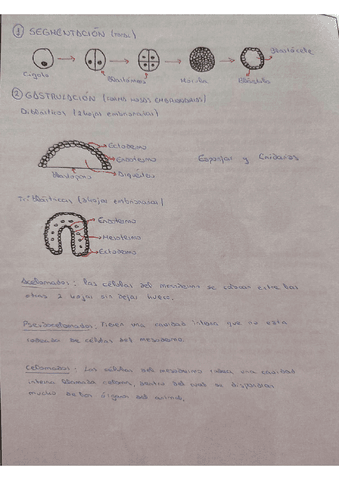 ① SEGMENTACIÓN
Cigoto
Blastómeros
Mórula
Blástula
Blastocele
② GASTRULACIÓN
Diblásticos (2 hojas embrionarias)
Ectodermo
Endodermo
Espongas y Cnidarios
Blastóporo
Triblásticos (3 hojas embrionarias)
Endodermo
Mesodermo
Ectodermo
Acelomados: Las células del mesodermo se colocan entre las
otras 2 hojas sin dejar hueco.
Pseudocelomados: Tienen una cavidad interna que no está
rodeada de células del mesodermo
Celomados: Las células del mesodermo rodean una cavidad
interna llamada celoma, dentro del cual se disponen
muchos de los órganos del animal.